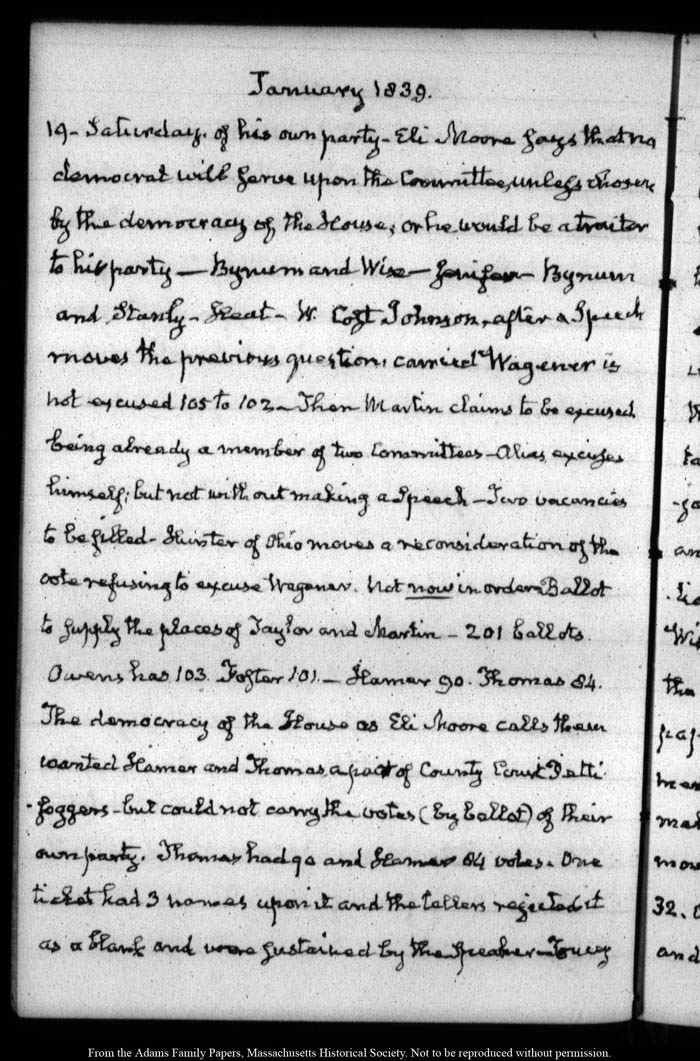 January 1839.
19 - Saturday. of his own party - Eli Moore says that no
democrat will serve upon the Committee, unless chosen
by the democracy of the House, or he would be a traitor
to his party — Bynum and Wise — Jenifer — Bynum
and Stanly - Heat - W. Cost Johnson, after a Speech
moves the previous question, carried Wagener is
not excused 105 to 102 - Then Martin claims to be excused
being already a member of two Committees - Alias, excuses
himself; but not without making a Speech - Two vacancies
to be filled - Hunter of Ohio moves a reconsideration of the
vote refusing to excuse Wagener. Not now in order Ballot
to supply the places of Taylor and Martin - 201 ballots.
Owens has 103. Foster 101. - Hamer 90. Thomas 84.
The democracy of the House as Eli Moore calls them
wanted Hamer and Thomas, a pair of County Court Petti-
foggers - but could not carry the votes (by ballot) of their
own party. Thomas had 90 and Hamer 84 votes. One
ticket had 3 names upon it and the tellers rejected it
as a blank and were sustained by the Speaker - Toucey
From the Adams Family Papers, Massachusetts Historical Society. Not to be reproduced without permission.